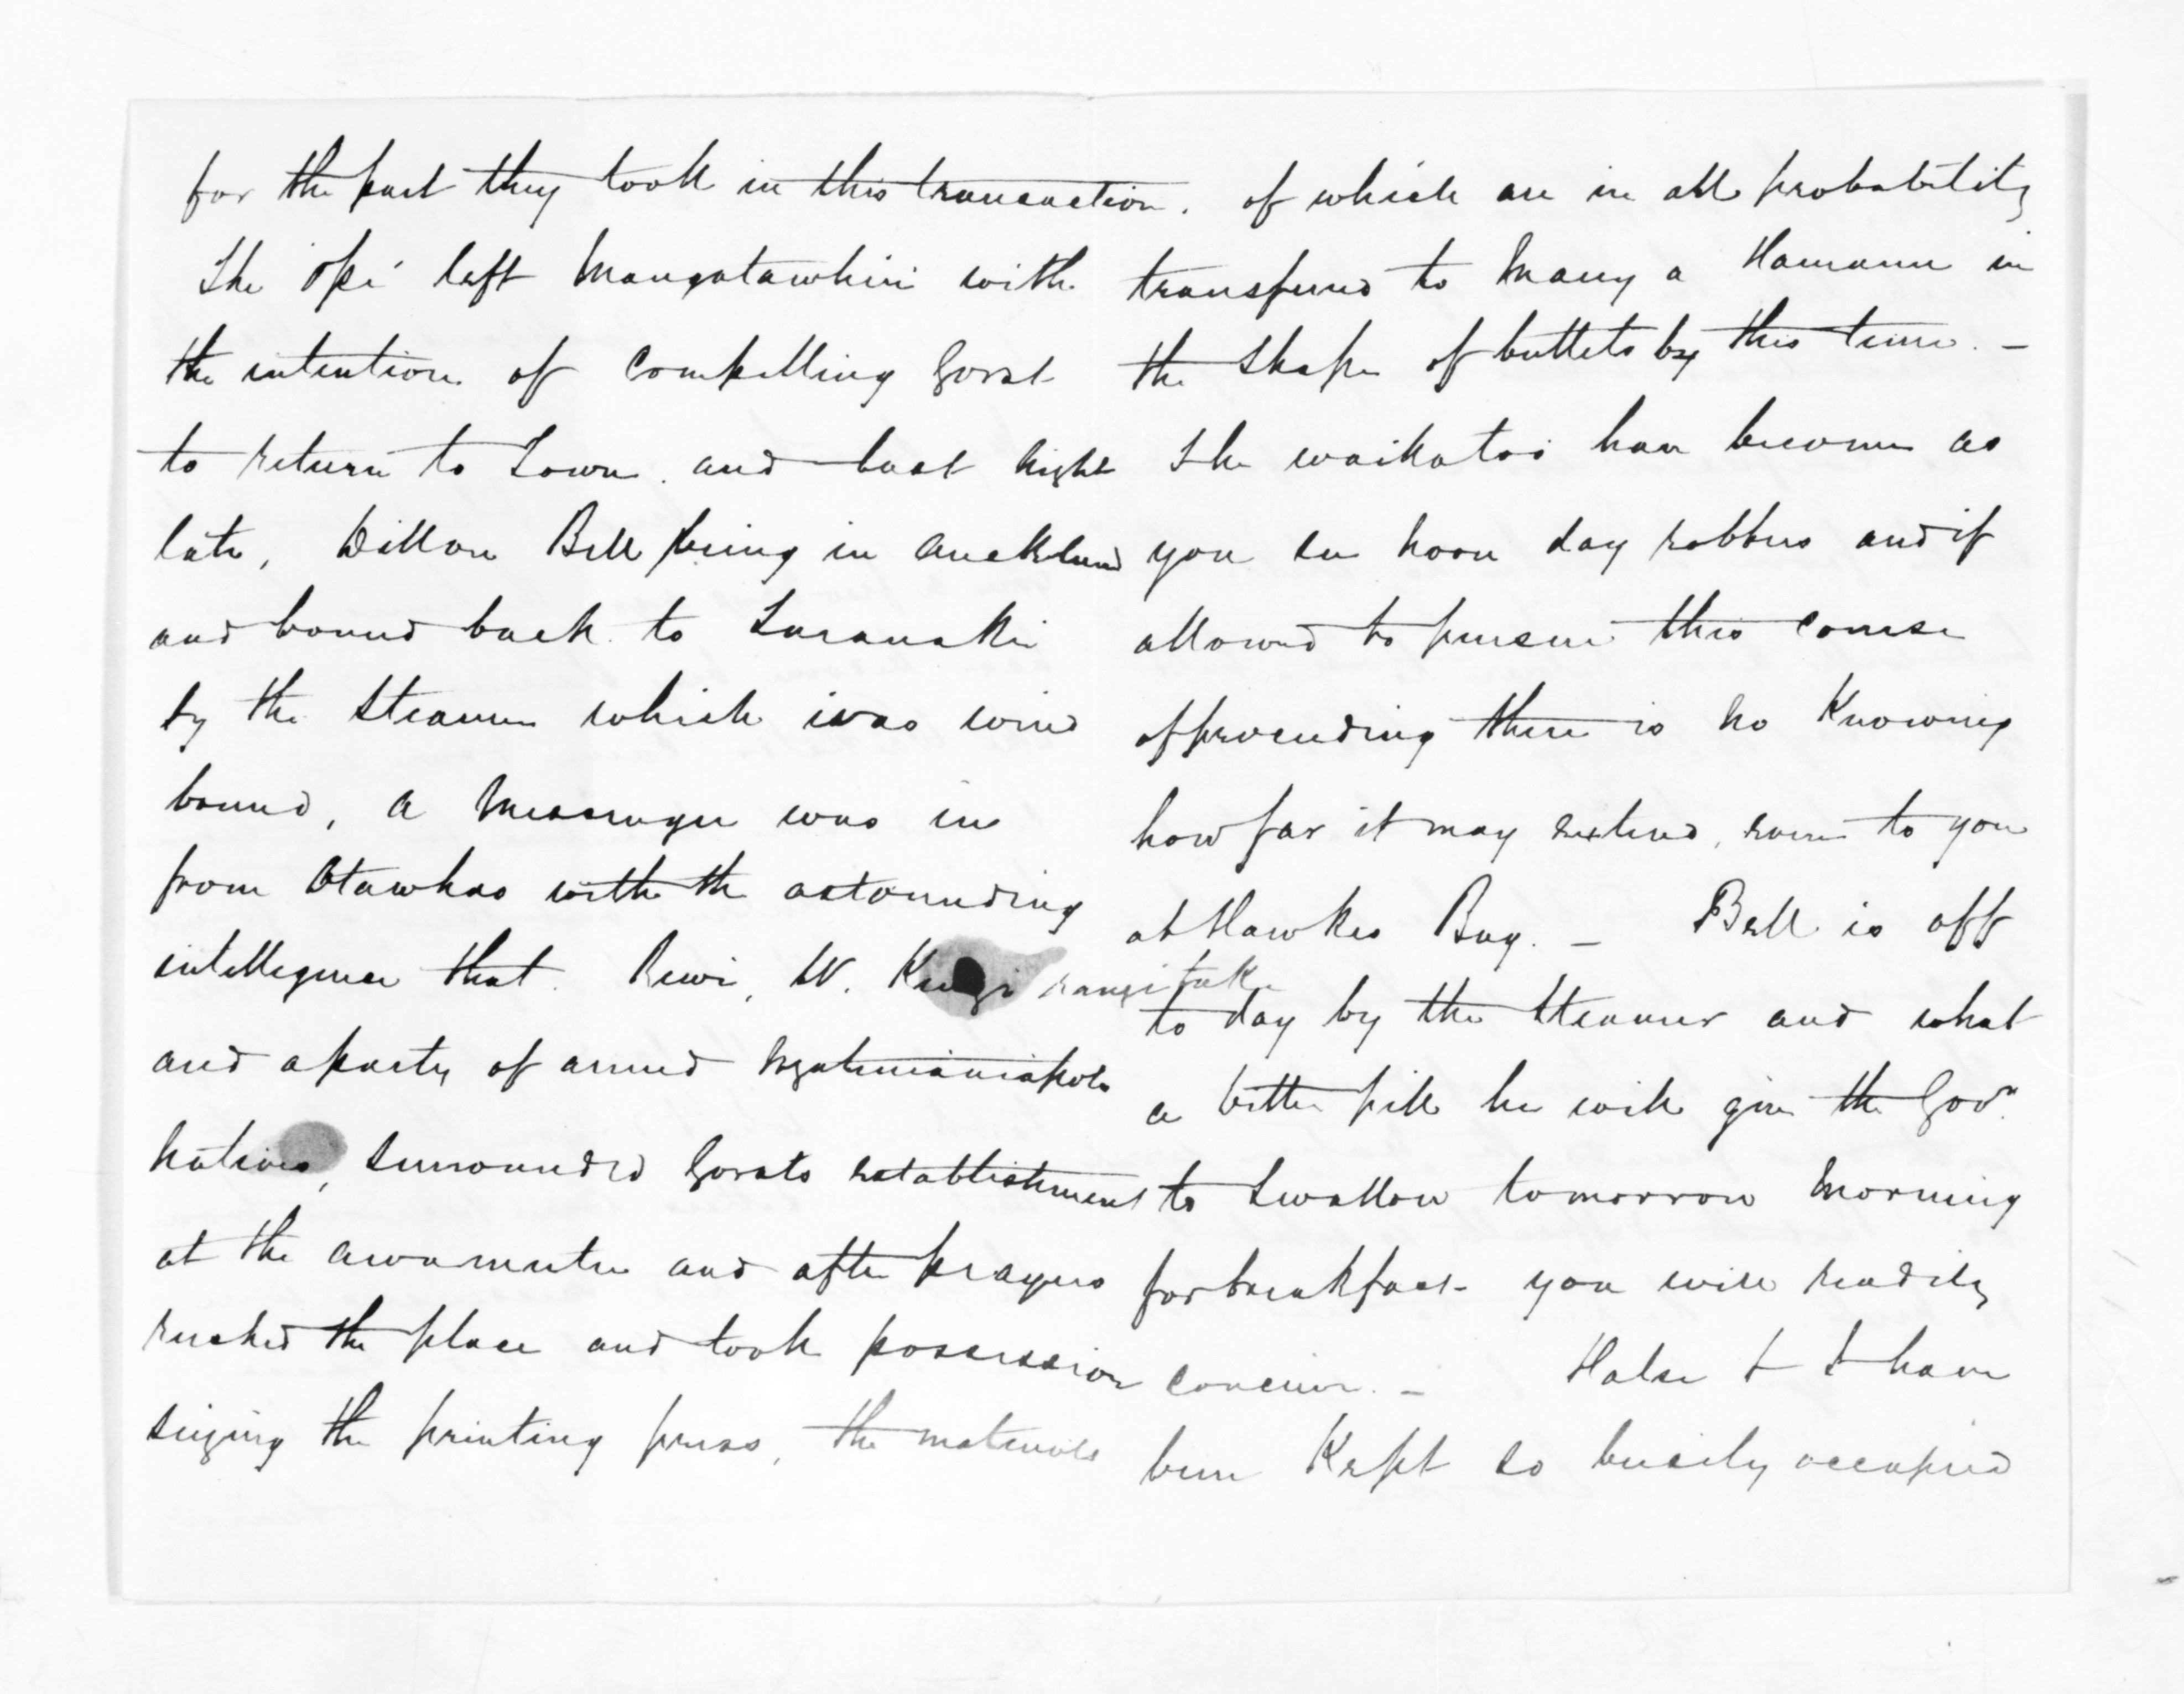 for the part they took in this transaction.
The 'Opé' left Mangatawhiri with
the intention of Compelling Gorst
to return to Town. and last night
late, Dillon Bell being in Auckland
and bound back to Taranaki
by the Steamer which was wind
bound, a Messenger was in
from Otawhao with the astounding
intelligence that Rewi, W. Kingi rangitake
and a party of armed Ngatimaniapoto
natives, surrounded Gorsts establishment
at the awamutu and after prayers
rushed the place and took possession
seizing the printing press, the materials
of which are in all probability
transferred to many a Hamana in
the shape of bullets by this time. –
The waikatos have become as
you see noon day robbers and if
allowed to pursue this course
of proceeding there is no Knowing
how far it may extend, even to you
at Hawkes Bay. – Bell is off
to day by the Steamer and what
a bitter pill he will give the Govr
to Swallow tomorrow Morning
for breakfast you will readily
conceive. – Halse & I have
been Kept so busily occupied